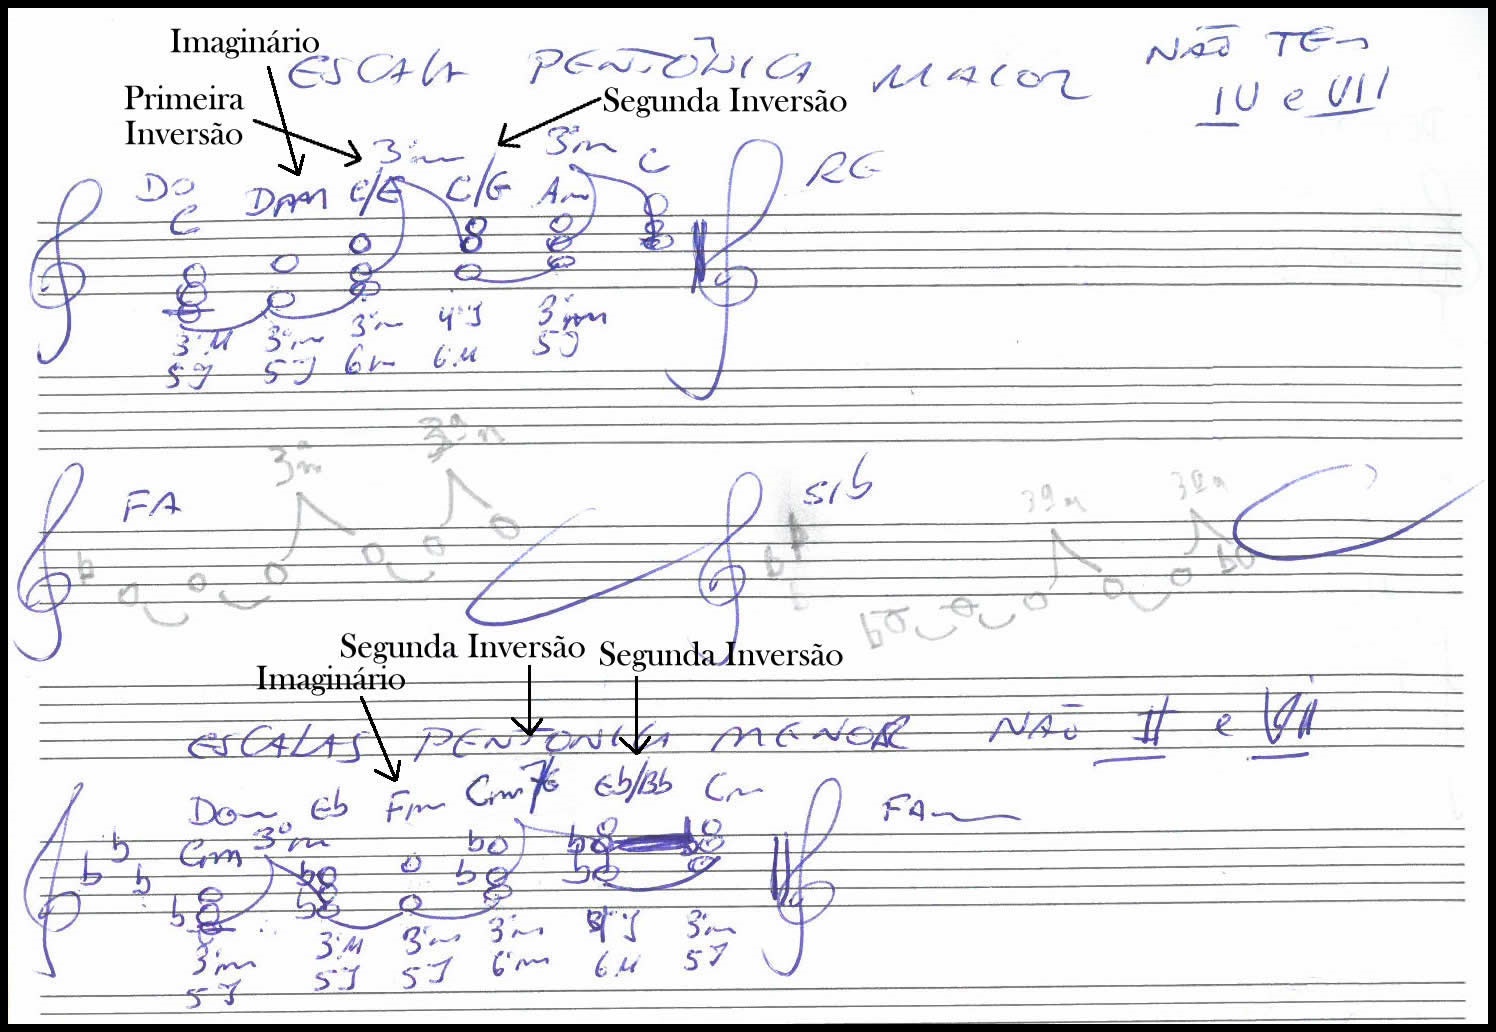 Imaginário
ESCALA PENTÔNICA MAIOR NÃO TEM
IV e VII
Primeira
Inversão
Segunda Inversão
3ªm 3ªm
DO RE
C Dm C/E C/G Am C
3ªM 3ªm 3ªm 4ªJ 3ªm
5J 5ªJ 6m 6M 5J
3ªm 3ªm
FA SIb 3ªm 3ªm
b b b b
Segunda Inversão Segunda Inversão
Imaginário
ESCALAS PENTONICA MENOR NÃO II e VII
Dom Eb Fm Cm/G Eb/Bb Cm FAm
Cm 3ªm
b b b b b b b b b b b
3ªm 3ªM 3ªm 3ªm 4ªJ 3ªm
5J 5J 5J 6ªm 6M 5J